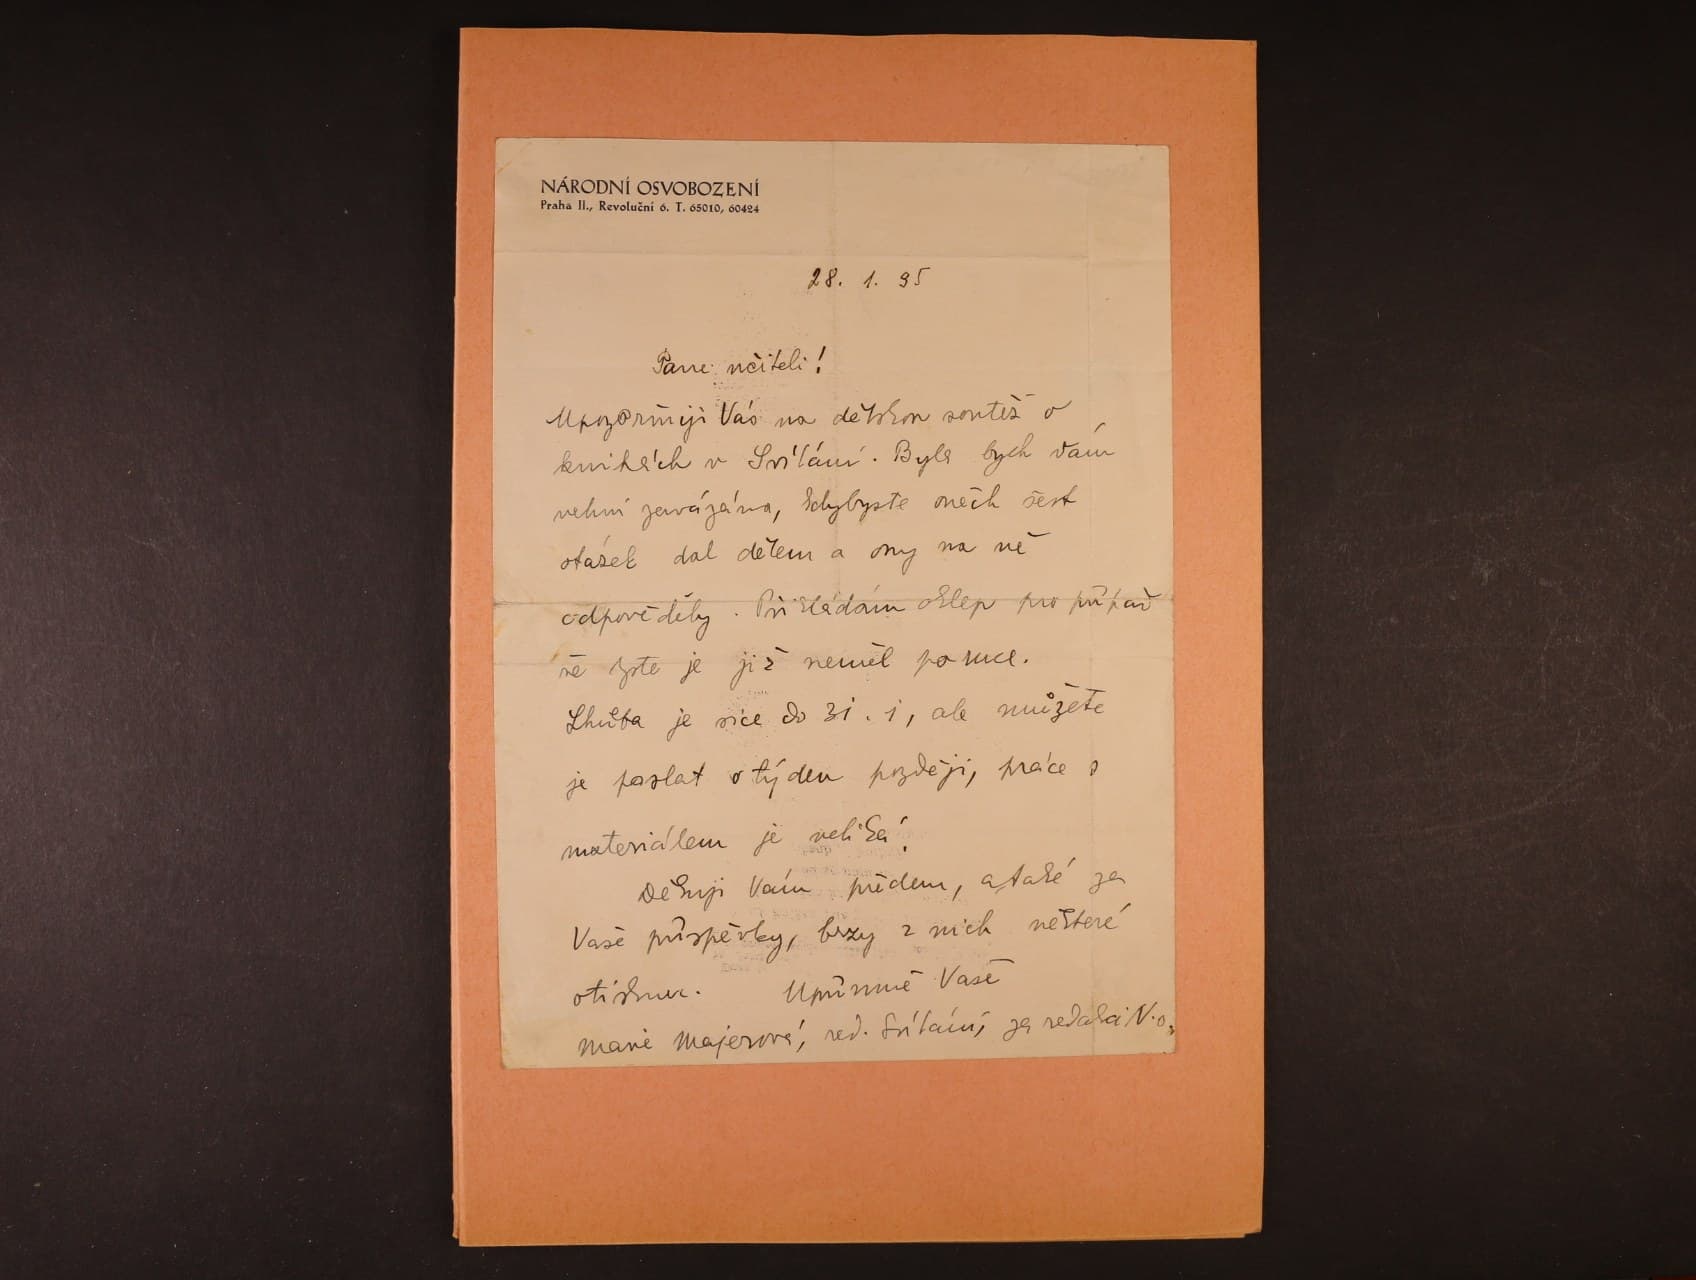 NÁRODNÍ OSVOBOZENÍ
Praha II., Revoluční 6. T. 65010, 60424
28. 1. 35
Pane učiteli!
Upozorňuji Vás na dětskou soutěž o
knihách v Svítání. Byla bych Vám
velmi zavázána, kdybyste oněch šest
otázek dal dětem a ony na ně
odpověděly. Přikládám oklep pro případ
že byste je již neměl po ruce.
Lhůta je sice do 31. 1, ale můžete
je poslat o týden později, práce s
materiálem je veliká!
Děkuji Vám předem, a také za
Vaše příspěvky, brzy z nich některé
otisknu. Upřímně Vaše
Marie Majerová, red. Svítání, za redakci N.O.